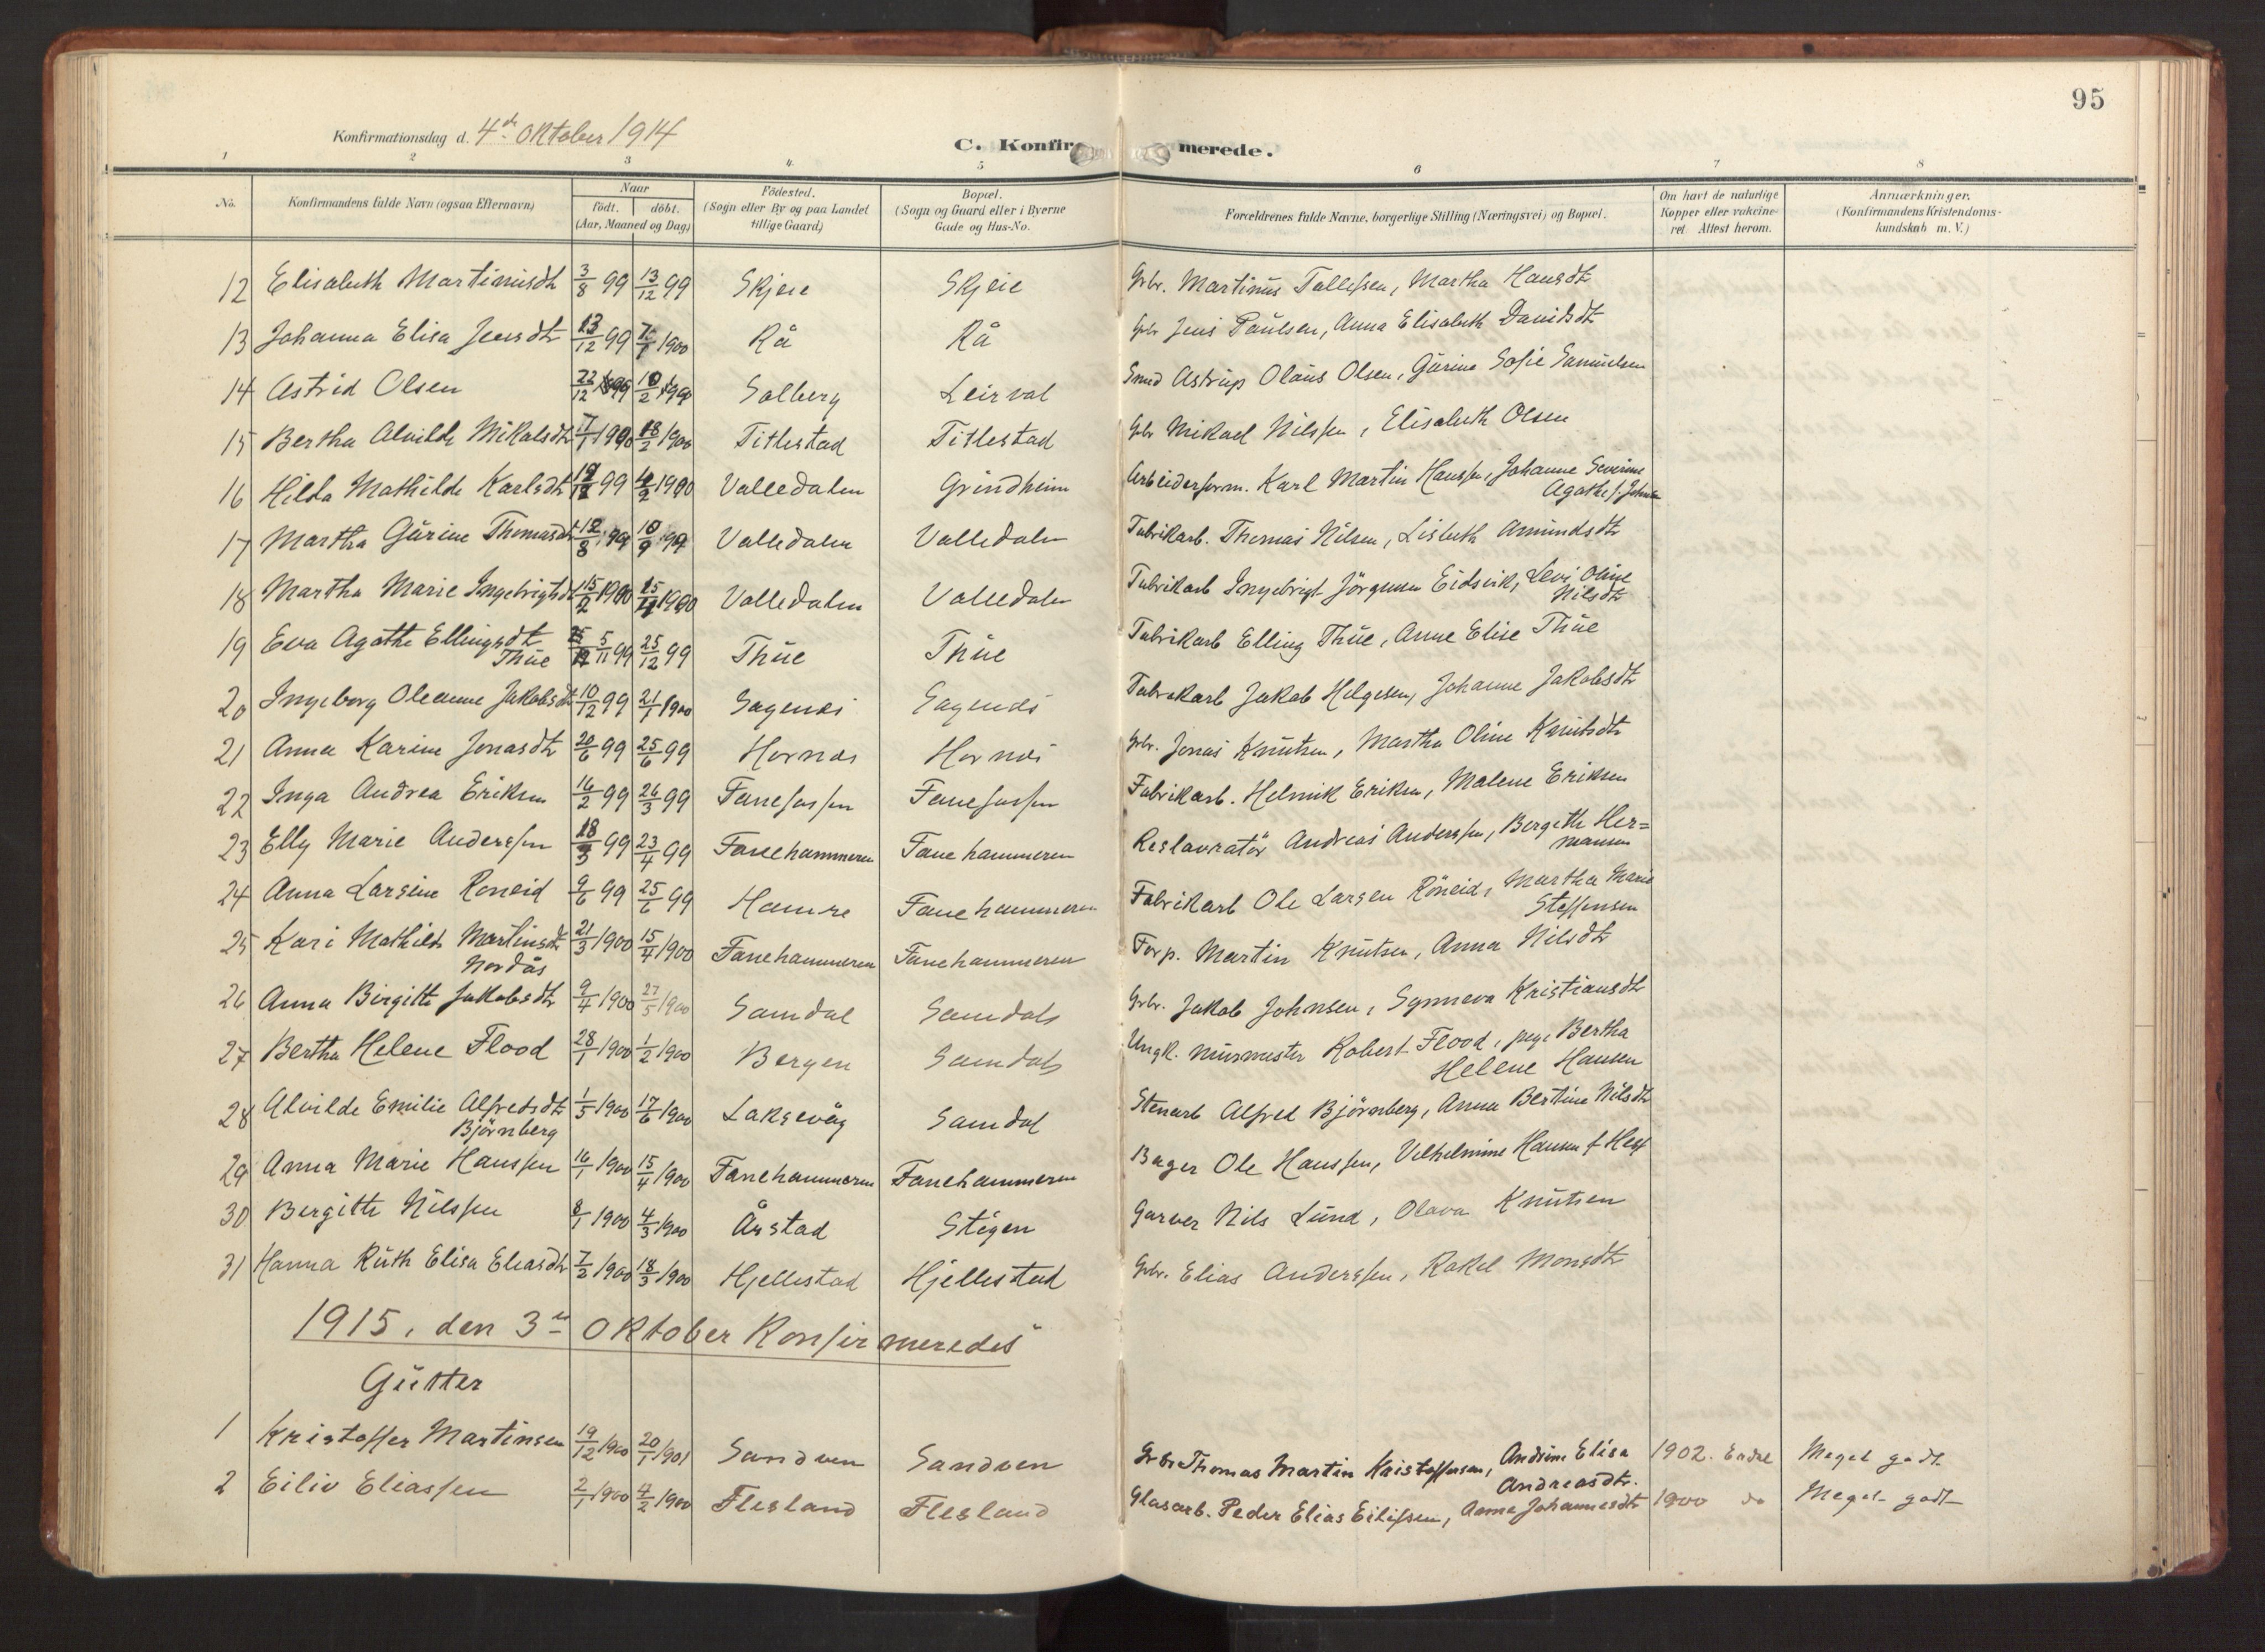 95
Konfirmationsdag d. 4de Oktober 1914
C. Konfirmerede.
1 2 3 4. 5 6 7 8
No. Konfirmandens fulde Navn (ogsaa Efternavn) Naar født. døbt. (Aar, Maaned og Dag) Fødested. (Sogn eller By og paa Landet tillige Gaard) Bopæl. (Sogn og Gaard eller i Byerne Gade og Hus-No. Forældrenes fulde Navne, borgerlige Stilling (Næringsvei) og Bopæl. Om havt de naturlige Kopper eller vakcineret. Attest herom. Anmærkninger. (Konfirmandens Kristendomskundskab m. V.)
12 Elisabeth Martinusdt 3/8 99 13/12 99 Skjeie Skjeie Gbr. Martinus Tollefsen, Martha Hansdtr
13 Johanna Elisa Jensdtr 13/12 99 1900 Rå Rå Gbr Jens Paulsen, Anna Elisabeth Davidsdtr
14 Astrid Olsen 22/12 99 10/2 Solberg Leirval Smed Astrup Olaus Olsen, Gurine Sofie Samuelsen
15 Bertha Alvilde Mikalsdtr 17/1 1900 18/2 1900 Titlestad Titlestad Gbr Mikael Nilssen, Elisabeth Olsen
16 Hilda Mathilde Karlsdtr 99 1900 Valledalen Grindheim Arbeiderform. Karl Martin Hanssen, Johanne Severine
Agathe f. Johnsen
17 Martha Gurine Thomasdt 12/8 99 10/9 99 Valledalen Valledalen Fabrikarb. Thomas Nilsen, Lisbeth Amundsdtr
18 Martha Marie Ingebrigtsdt 15/2 1900 1900 Valledalen Valledalen Fabrikarb Ingebrigt Jörgensen Eidsvik, Levi Oline
Nilsdtr
19 Eva Agathe Ellingsdtr 5/11 99 25/12 99 Thüe Thüe Fabrikarb Elling Thüe, Anne Elise Thüe
Thüe
20 Ingeborg Oleanne Jakobsdt 10/12 99 21/1 1900 Sagenes Sagenes Fabrikarb Jakob Helgesen, Johanne Jakobsdtr
21 Anna Karine Jonasdtr 20/6 99 25/6 99 Hornes Hornes Gbr. Jonas Knutsen, Martha Oline Knutsdtr
22 Inga Andrea Eriksen 16/2 99 26/3 99 Fanefossen Fanefossen Fabrikarb. Helmik Eriksen, Malene Eriksen
23 Elly Marie Anderssen 18/3 99 23/4 99 Fanehammeren Fanehammeren Restauratör Andreas Anderssen, Bergeth Her=
mansen
24 Anna Larsine Roneid 9/6 99 25/6 99 Hamre Fanehammeren Fabrikarb Ole Larsen Röneid, Martha Marie
Steffensen
25 Kari Mathilde Martinsdtr 21/3 1900 15/4 1900 Fanehammeren Fanehammeren Forp. Martin Knutsen, Anna Nilsdtr
Nordås
26 Anna Birgitte Jakobsdtr 9/4 1900 27/5 1900 Samdal Samdal Gbr. Jakob Johnsen, Synneva Kristiansdtr
27 Bertha Helene Flood 28/1 1900 1/2 1900 Bergen Samdal Ungk. murmester Robert Flood, pige Bertha
Helene Hansen
28 Alvilde Emilie Alfredsdtr 1/5 1900 17/6 1900 Laksevåg Samdal Stenarb Alfred Björnberg, Anna Bertine Nilsdtr
Björnberg
29 Anna Marie Hanssen 16/1 1900 15/4 1900 Fanehammeren Fanehammeren Bager Ole Hanssen, Vilhelmine Hansen
30 Bergitte Nilssen 8/1 1900 4/3 1900 Årstad Stegen Garver Nils Lund, Olava Knutsen
31 Hanna Ruth Elisa Eliasdtr 7/2 1900 18/3 1900 Hjellestad Hjellestad Gbr. Elias Anderssen, Rakel Monsdtr
1915, den 3de Oktober Konfirmeredes
Gutter
1 Kristoffer Martinsen 19/12 1900 20/1 1901 Sandven Sandven Gbr Thomas Martin Kristoffersen, Andrine Elisa 1902. Meget godt
Andreasdtr.
2 Eiliv Eliassen 2/1 1900 4/2 1900 Flesland Flesland Glasarb. Peder Elias Eilifsen, Anna Johannesdtr 1900 do Meget godt